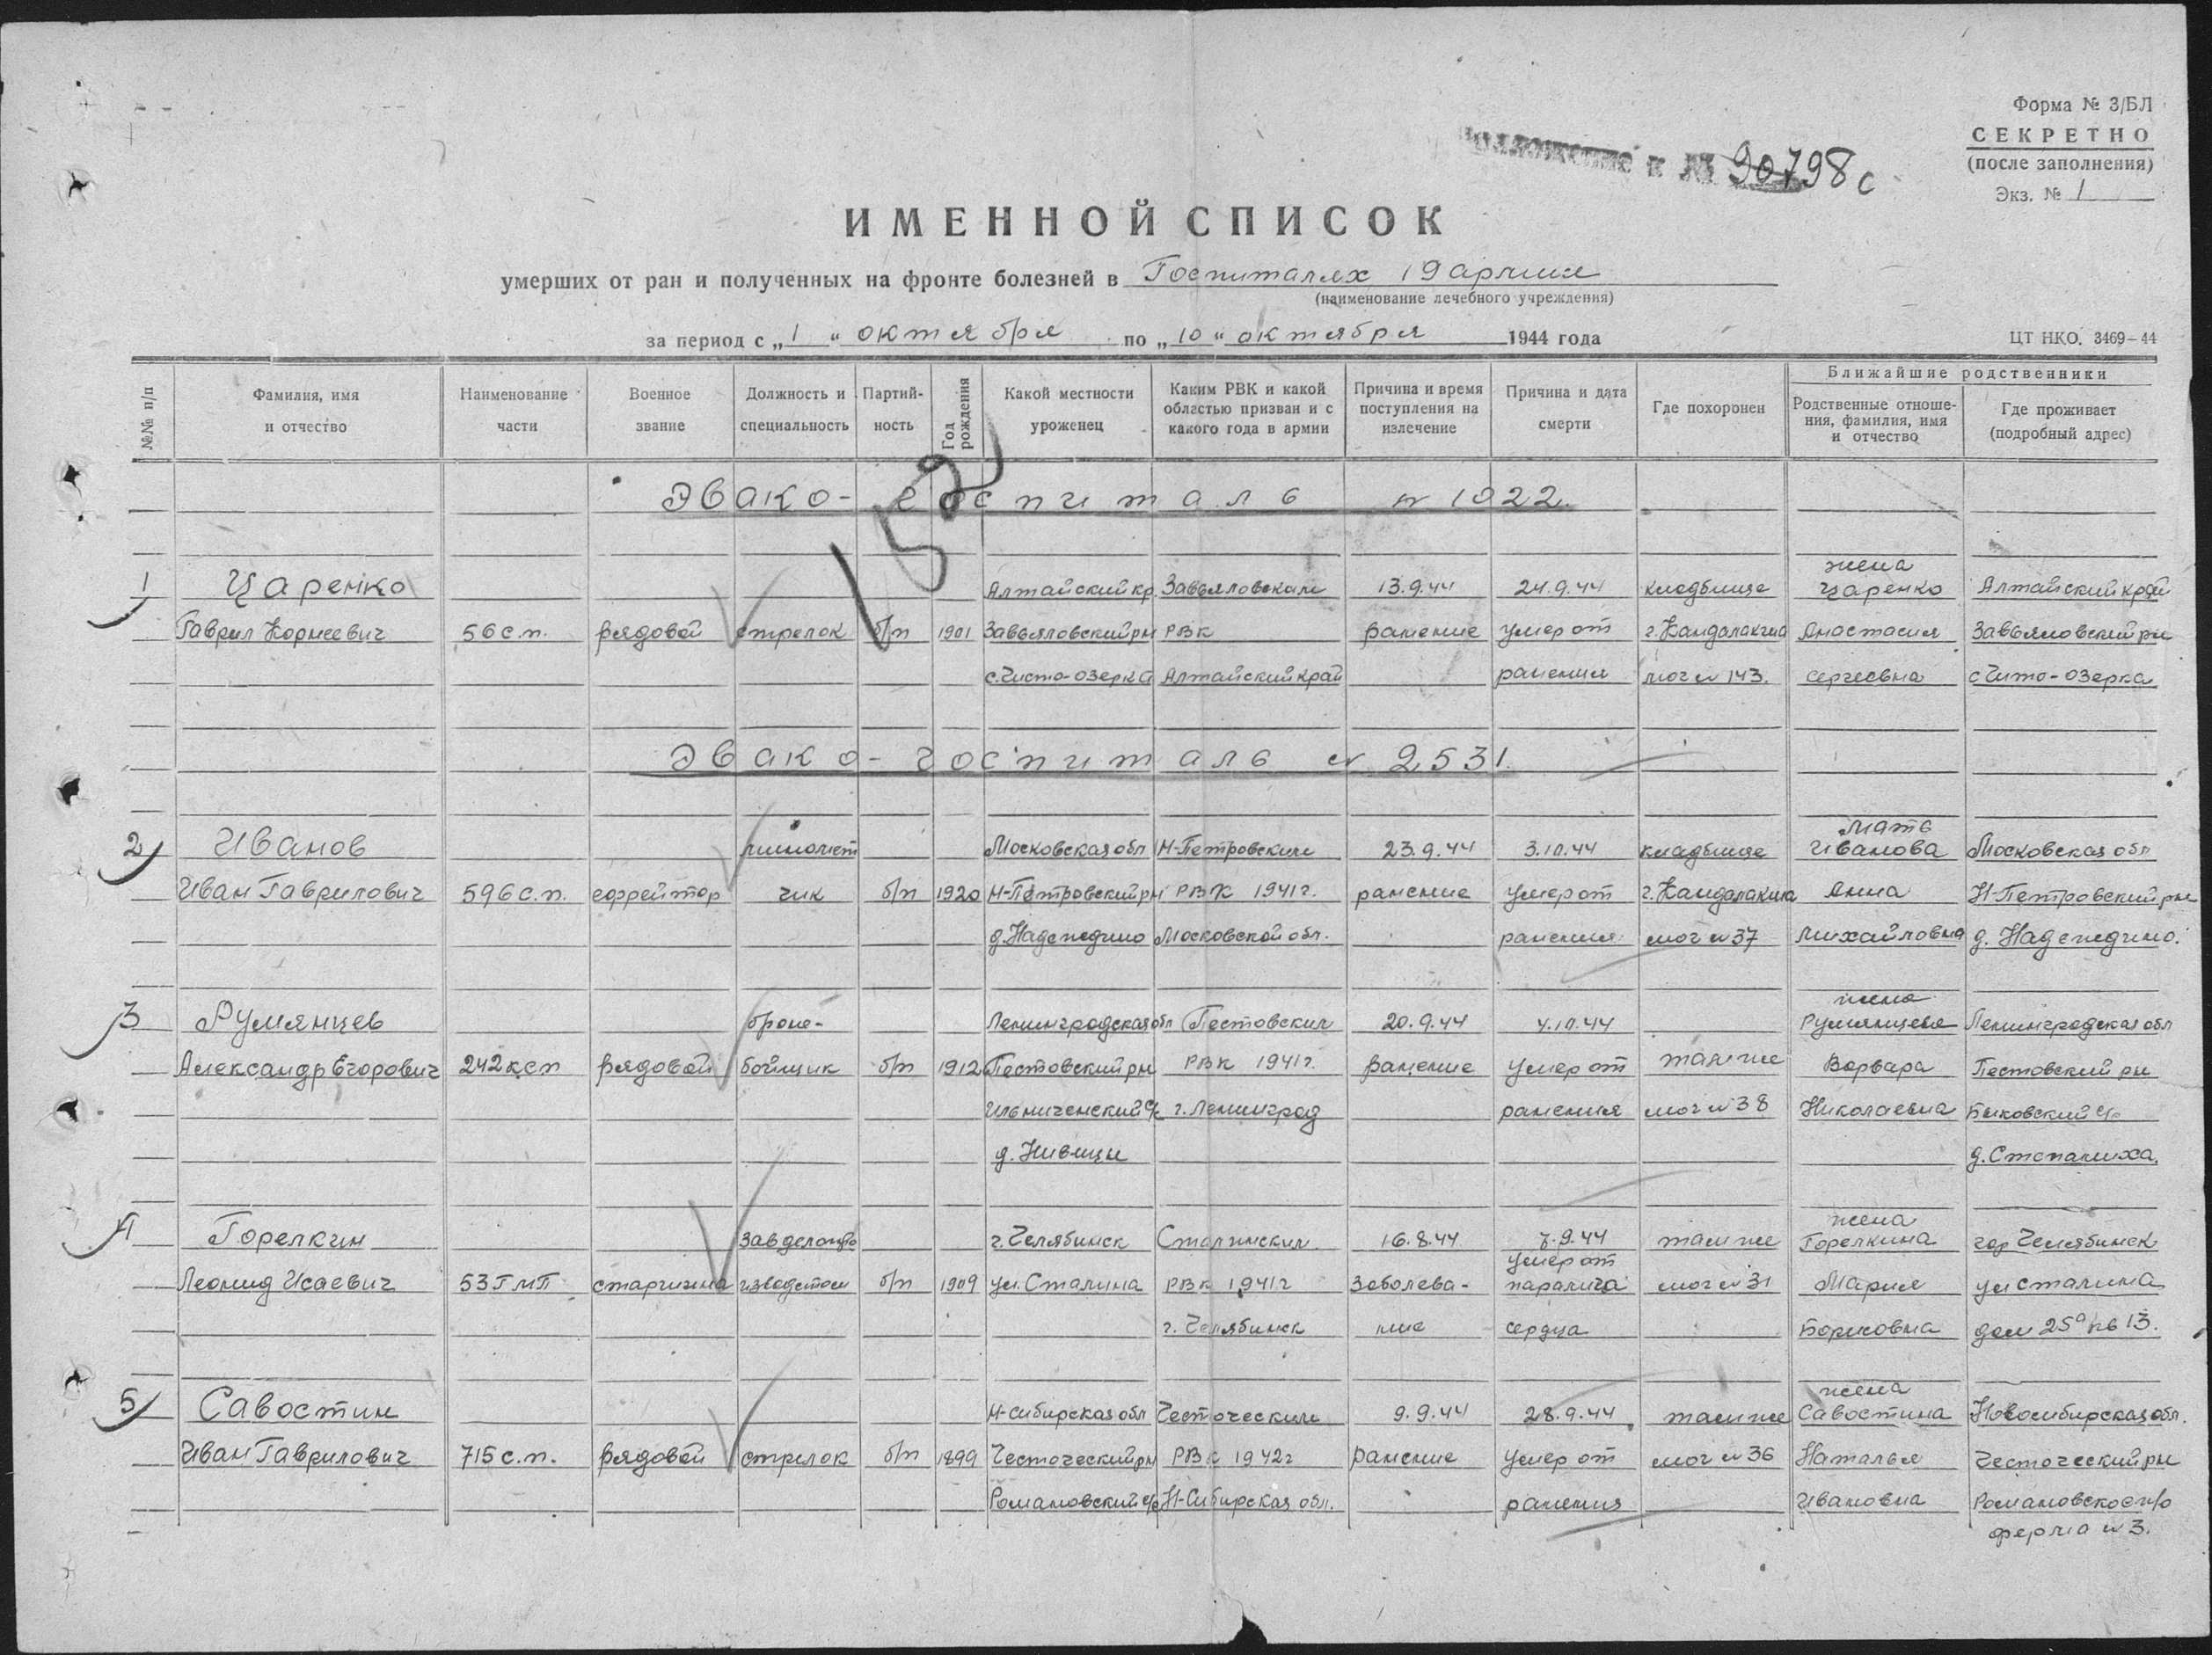 Форма № 3/БЛ
СЕКРЕТНО
(после заполнения)
Экз. № 1
к № 90798с
ИМЕННОЙ СПИСОК
умерших от ран и полученных на фронте болезней в Госпиталях 19 армии
(наименование лечебного учреждения)
за период с „1“ октября по „10“ октября 1944 года
ЦТ НКО. 3469-44
№№ п/п
Фамилия, имя и отчество
Наименование части
Военное звание
Должность и специальность
Партийность
Год рождения
Какой местности уроженец
Каким РВК и какой областью призван и с какого года в армии
Причина и время поступления на излечение
Причина и дата смерти
Где похоронен
Ближайшие родственники
Родственные отношения, фамилия, имя и отчество
Где проживает (подробный адрес)
152
Эвако-госпиталь № 1022.
жена
1 Царенко Алтайский кр. Завьяловским 13.9.44 24.9.44 кладбище Царенко Алтайский край
Гаврил Корнеевич 56 с.п. рядовой стрелок б/п 1901 Завьяловский рн РВК ранение умер от г. Кандалакша Анастасия Завьяловский рн
с. Чисто-озерка Алтайский край ранения мог № 143. Сергеевна с Чито-озерка
Эвако-госпиталь № 2531.
мать
2 Иванов пулемет Московская обл Н-Петровским 23.9.44 3.10.44 кладбище Иванова Московская обл
Иван Гаврилович 596 с.п. ефрейтор чик б/п 1920 Н-Петровский рн РВК 1941 г. ранение умер от г. Кандалакша Анна Н-Петровский рн
д. Надеждино Московской обл. ранения мог № 37 Михайловна д. Надеждино.
жена
3 Румянцев броне- Ленинградская обл Пестовским 20.9.44 4.10.44 Румянцева Ленинградская обл
Александр Егорович 242 ксп рядовой бойщик б/п 1912 Пестовский рн РВК 1941 г. ранение умер от там же Варвара Пестовский рн
с/с г. Ленинград ранения мог № 38 Николаевна Быковский с/с
д. Нивицы д. Степаниха.
жена
4 Горелкин завделопро г. Челябинск Сталинским 16.8.44 7.9.44 там же Горелкина гор Челябинск
умер от
Леонид Исаевич 53 ГМП старшина изводством б/п 1909 ул. Сталина РВК 1941 г заболева- паралича мог № 31 Мария ул Сталина
г. Челябинск ние сердца Борисовна дом 25а кв 13.
жена
5 Савостин Н-Сибирская обл Честоческим 9.9.44 28.9.44 там же Савостина Новосибирская обл.
Иван Гаврилович 715 с.п. рядовой стрелок б/п 1899 Честоческий рн РВК 1942 г ранение умер от мог № 36 Наталья Честоческий рн
Романовский с/с Н-Сибирская обл. ранения Ивановна Романовское п/о
ферма № 3.